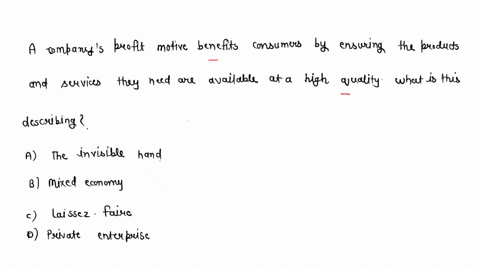 A company's profit motive benefits consumers by ensuring the products
and services they need are available at a high quality. what is this
describing?
A) The invisible hand
B) Mixed economy
c) Laissez-faire
D) Private enterprise